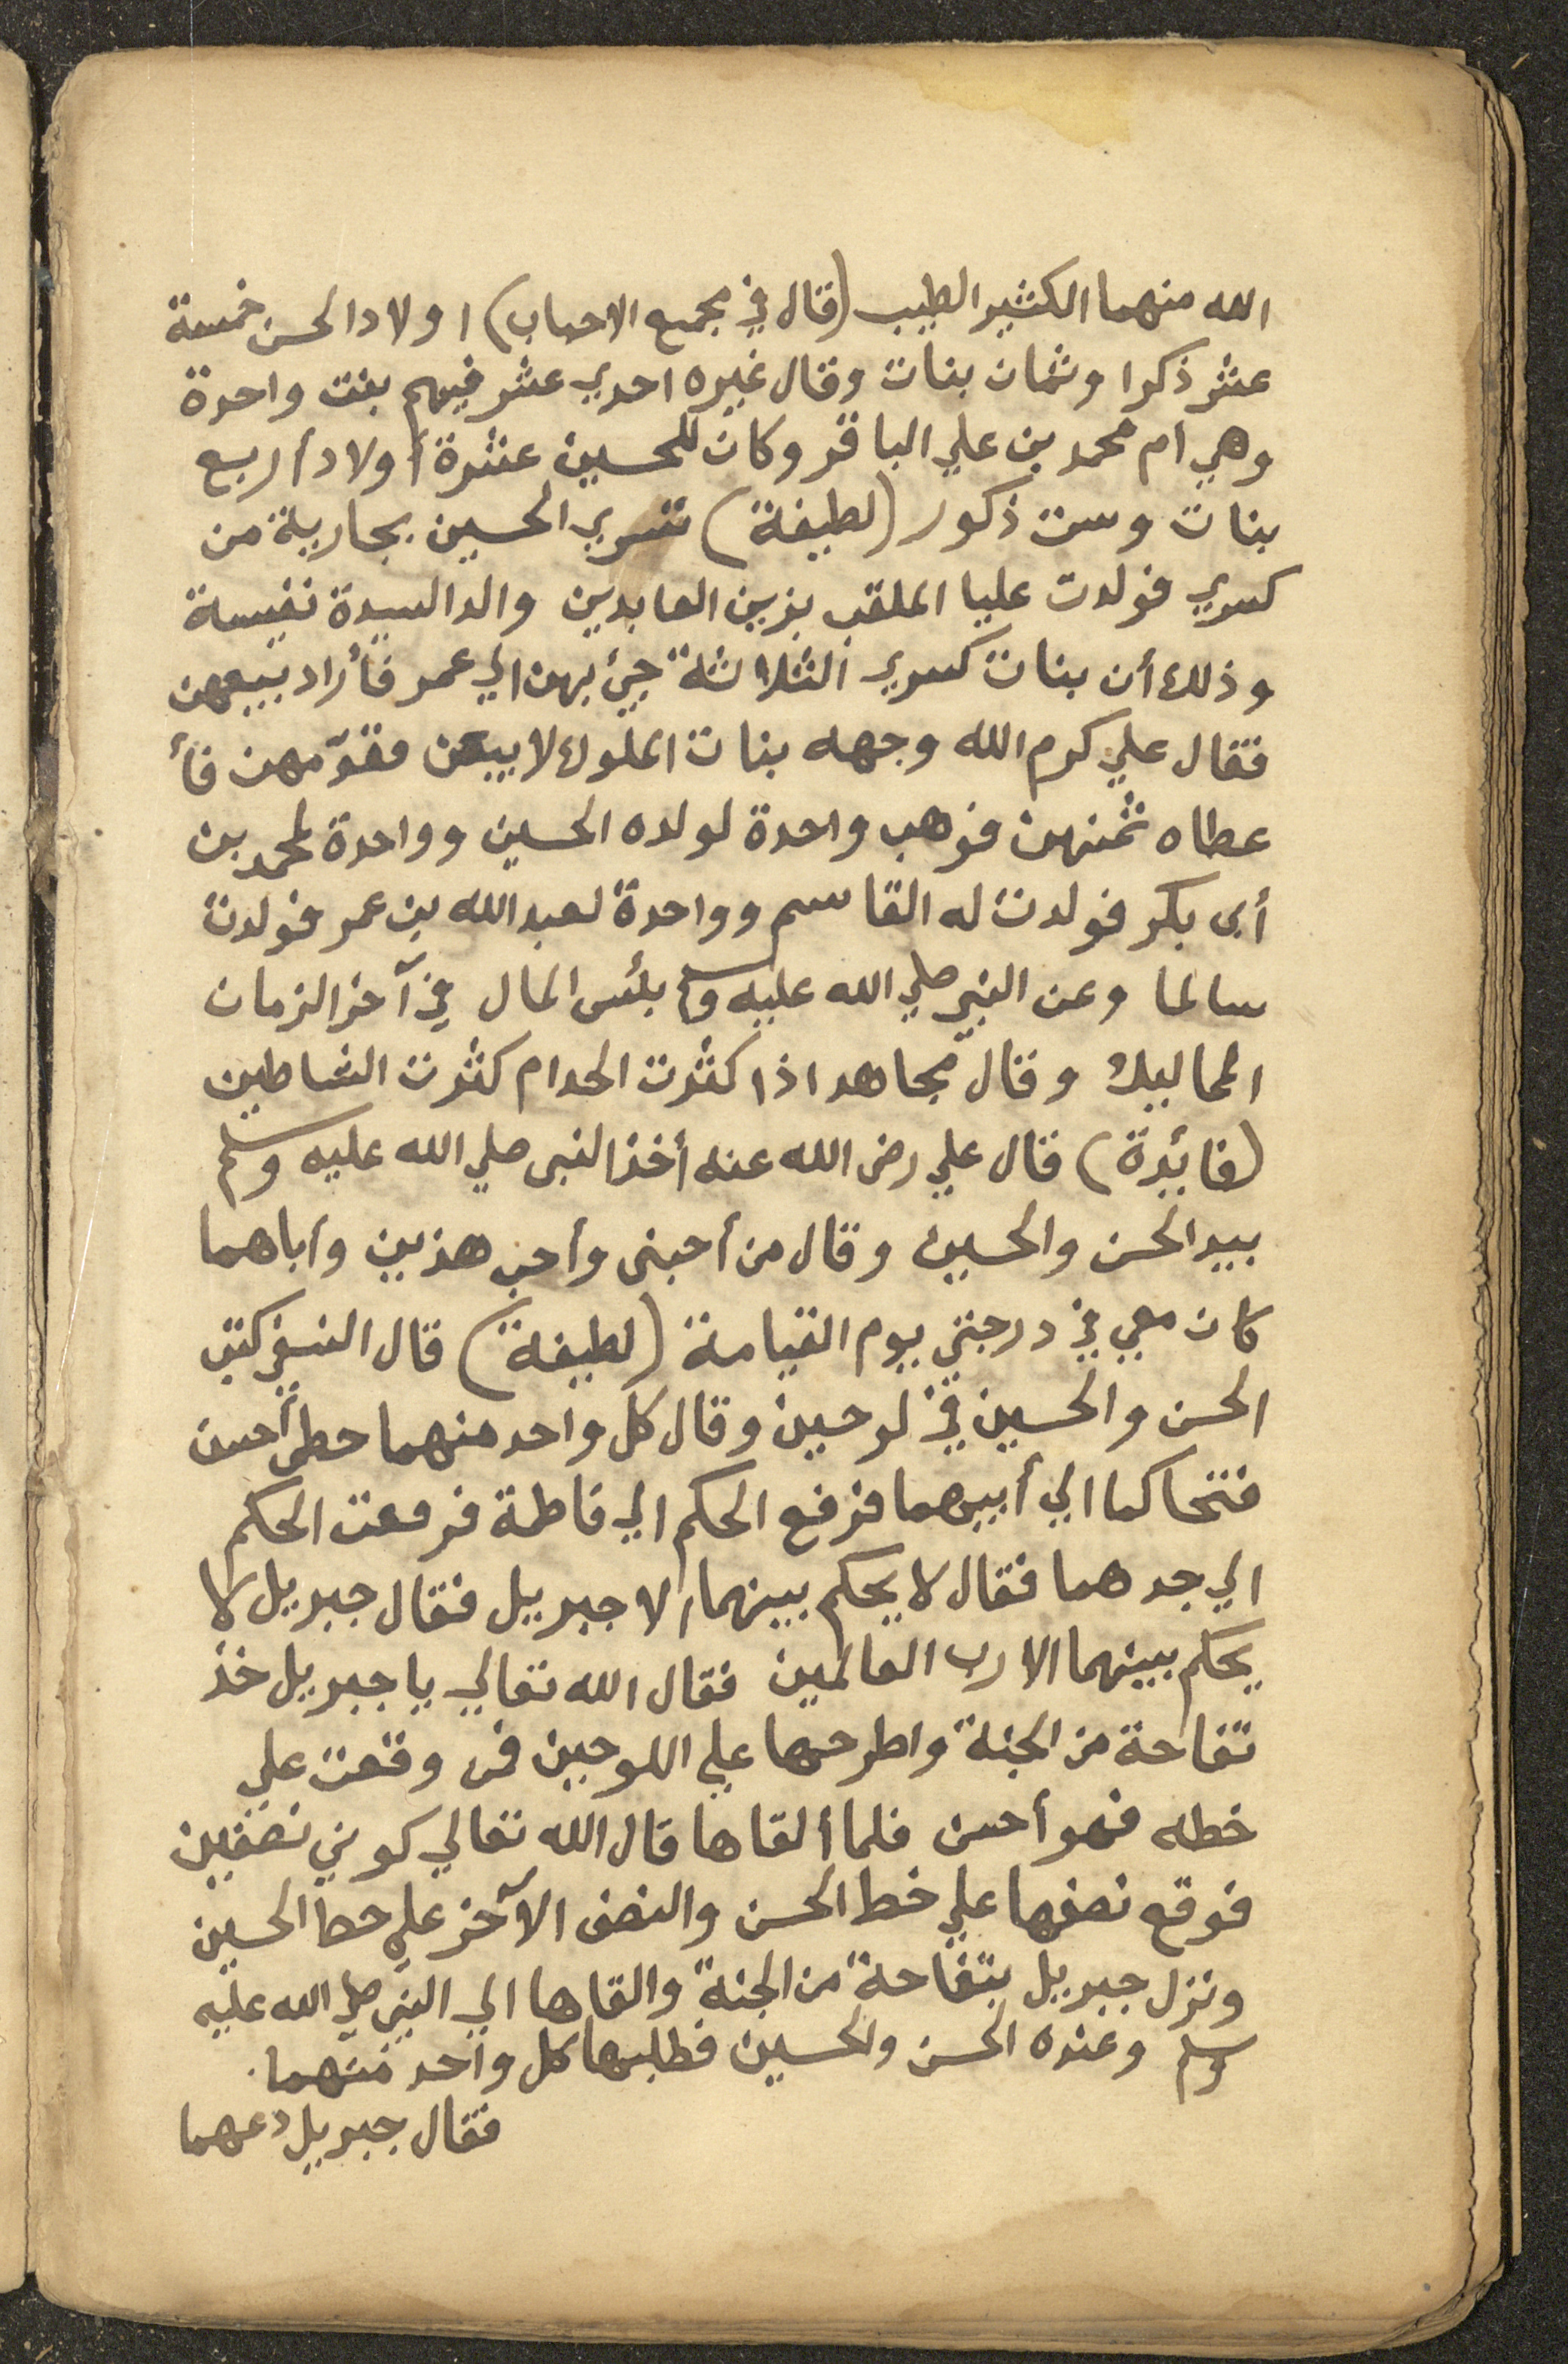 الله منهما الكثير الطيب (قال في مجمع الاحباب) اولاد الحسن خمسة
عشر ذكرا وثمان بنات وقال غيره احدي عشر فيهم بنت واحدة
وهي أم محمد بن علي الباقر وكان للحسين عشرة أولاد أربع
بنات وست ذكور (لطيفة) تسري الحسين بجارية من
كسري فولدت عليا الملقب بزين العابدين والد السيدة نفيسة
وذلك أن بنات كسري الثلاثة جيئ بهن الي عمر فأراد بيعهن
فقال علي كرم الله وجهه بنات الملوك لا يبعن فقوّمهن فأ
عطاه ثمنهن فوهب واحدة لولده الحسين وواحدة لمحمد بن
أبى بكر فولدت له القاسم وواحدة لعبد الله بن عمر فولدت
سالما وعن النبي صلي الله عليه وسلم بئس المال في آخر الزمان
المماليك وقال مجاهد اذا كثرت الخدام كثرت الشاطين
(فايدة) قال علي رضى الله عنه أخذ النبى صلي الله عليه وسلم
بيد الحسن والحسين وقال من أحبنى وأحب هذين وأباهما
كان معي في درجتي يوم القيامة (لطيفة) قال النسفي كتب
الحسن والحسين في لوحين وقال كل واحد منهما خطى أحسن
فتحاكما الي أبيهما فرفع الحكم الي فاطمة فرفعت الحكم
الي جدهما فقال لا يحكم بينهما الا جبريل فقال جبريل لا
يحكم بينهما الا رب العالمين فقال الله تعالي يا جبريل خذ
تفاحة من الجنة واطرحها علي اللوحين فمن وقعت علي
خطه فهو أحسن فلما ألقاها قال الله تعالي كوني نصفين
فوقع نصفها علي خط الحسن والنصف الآخر علي خط الحسين
ونزل جبريل بتفاحة من الجنة والقاها الي النبي صلي الله عليه
وسلم وعنده الحسن والحسين فطلبها كل واحد منهما
فقال جبريل دعهما